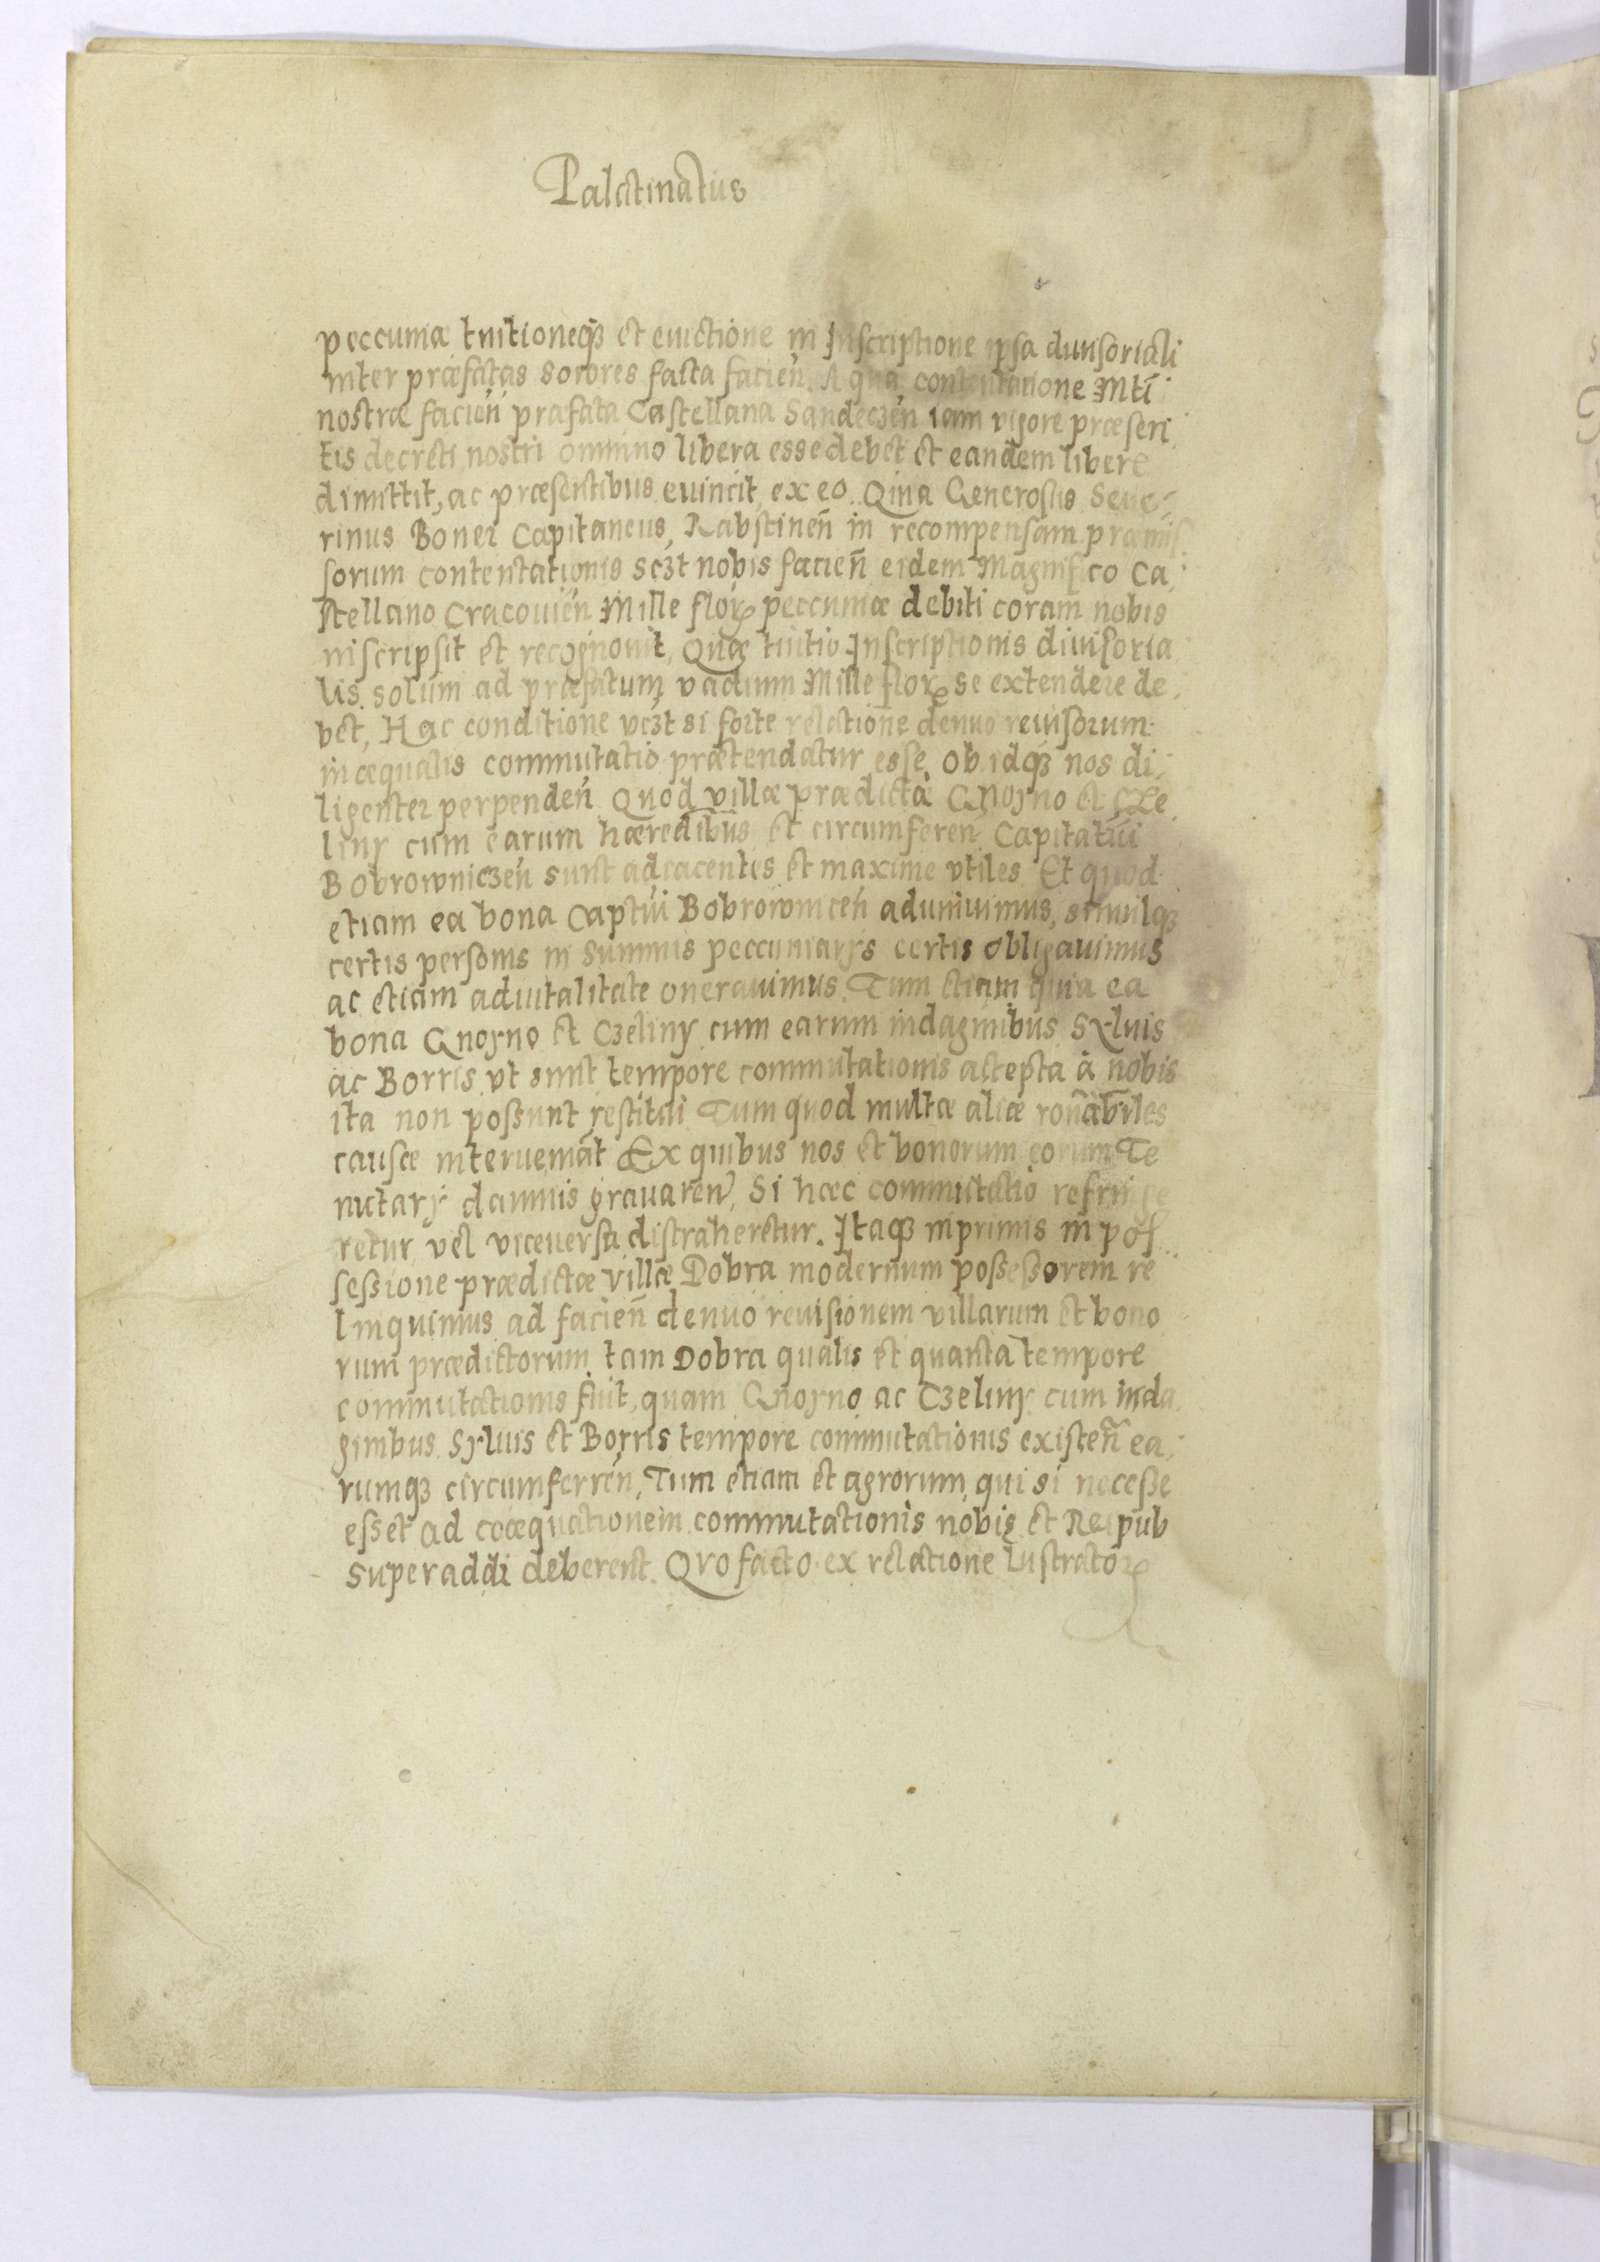 Palatinatus
peccuniæ tuitioneq₃ et euictione in Inscriptione ipsa diuisoriali
inter præfatas sorores facta facień. A qua contentatione Mti
nostræ facień præfata Castellana Sandeczeń iam vigore præscri
tis decreti nostri omnino libera esse debet et eandem libere
dimittit, ac præsentibus euincit, ex eo Quia Generosus Seue-
rinus Boner Capitaneus, Rabstineñ in recompensam præmis
sorum contentationis sc₃t nobis facieñ eidem Magnifico Ca,
stellano Cracouień Mille florꝝ peccuniæ debiti coram nobis
inscripsit et recognouit, Quæ tuitio Inscriptionis diuisoria
lis solum ad præfatum vadium Mille florꝝ se extendere de,
bet, Hac conditione vc₃t si forte relatione denuo reuisorum
in æqualis commutatio prætendatur esse, Ob idq₃ nos di,
ligenter perpendeń Quod villæ prædictæ Gnoyno et Cze
liny cum earum hæredibus et circumfereń Capitatui
Bobrowniczeń sunt adiacentes et maxime vtiles Et quod
etiam ea bona Captui Bobrowniceń aduniuimus, simulq₃
certis personis in summis peccuniarijs certis obligauimus
ac etiam aduitalitate onerauimus. Tum etiam quia ea
bona Gnoyno et Czeliny cum earum indaginibus Syluis
ac Borris vt sunt tempore commutationis accepta à nobis
ita non possunt restitui Tum quod multæ aliæ roñabiles
causæ interueniāt Ex quibus nos et bonorum eorum Te
nutarij damnis grauareñ, Si hæc commutatio refringe
retur vel viceuersa distraheretur. Itaq₃ inprimis in pos
sessione prædictæ villæ Dobra modernum possessorem re
linquimus ad facieñ denuo reuisionem villarum et bono
rum prædictorum tam Dobra qualis et quanta tempore
commutationis fuit, quam Gnoyno ac Czeliny cum inda
ginibus Syluis et Borris tempore commutationis existeñ ea,
rumq₃ circumferreń, Tum etiam et agrorum, qui si necesse
esset ad coæquationem commutationis nobis et Reipub
superaddi deberent. Qvo facto ex relatione lustratorꝝ